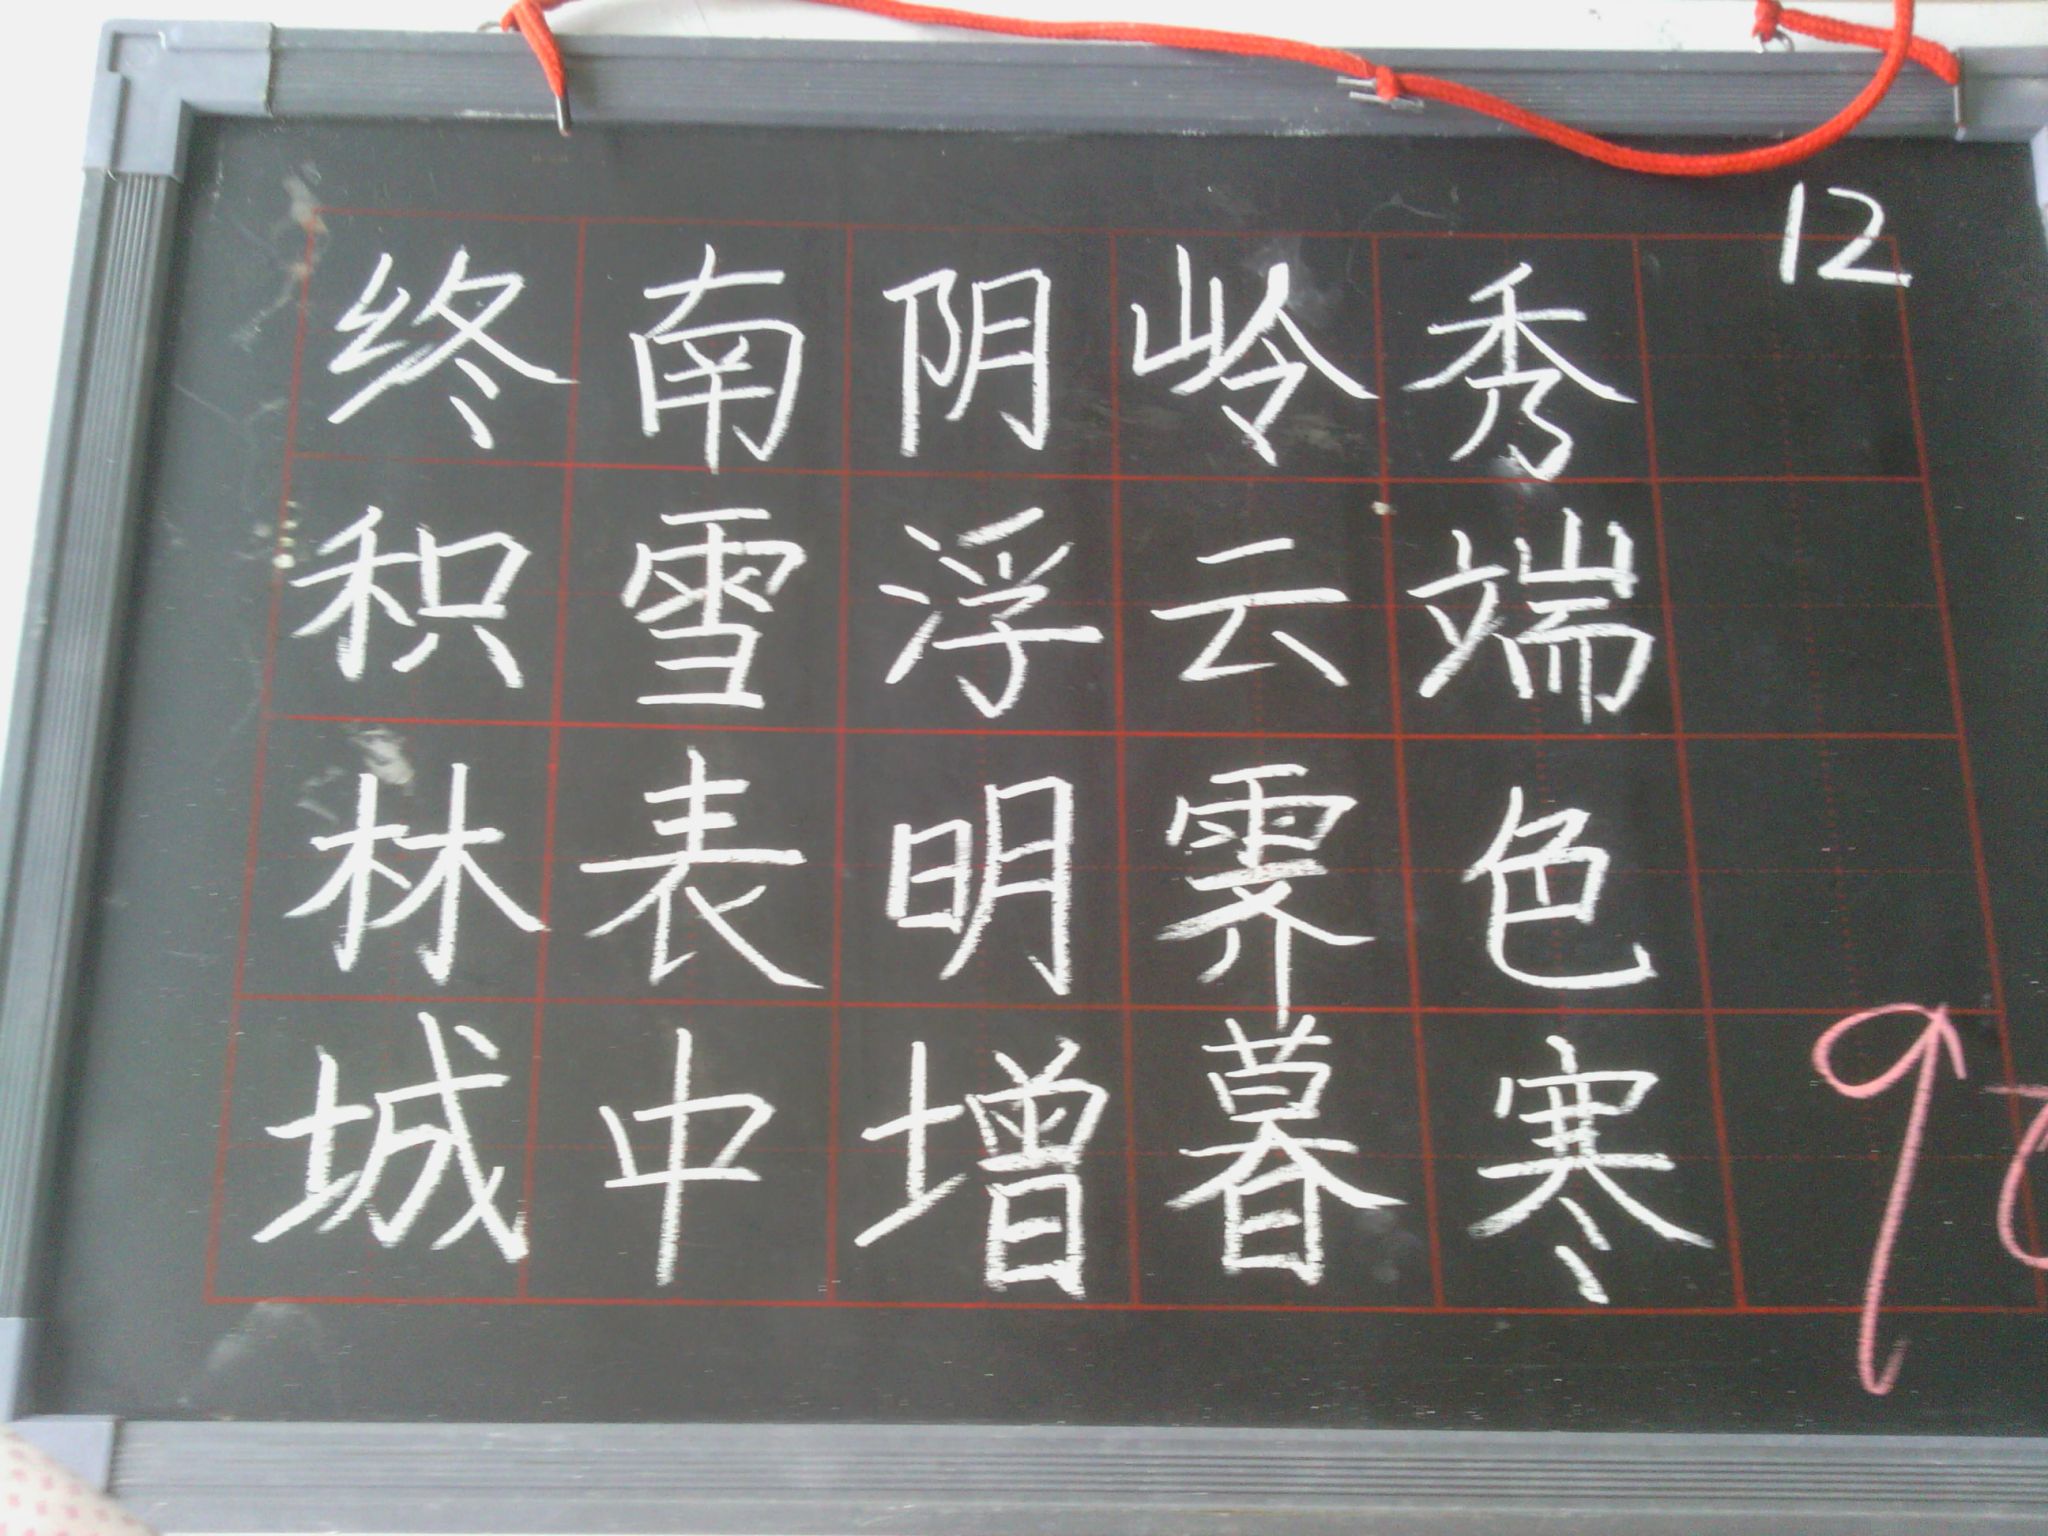 12
终南阴岭秀
积雪浮云端
林表明霁色
城中增暮寒
9